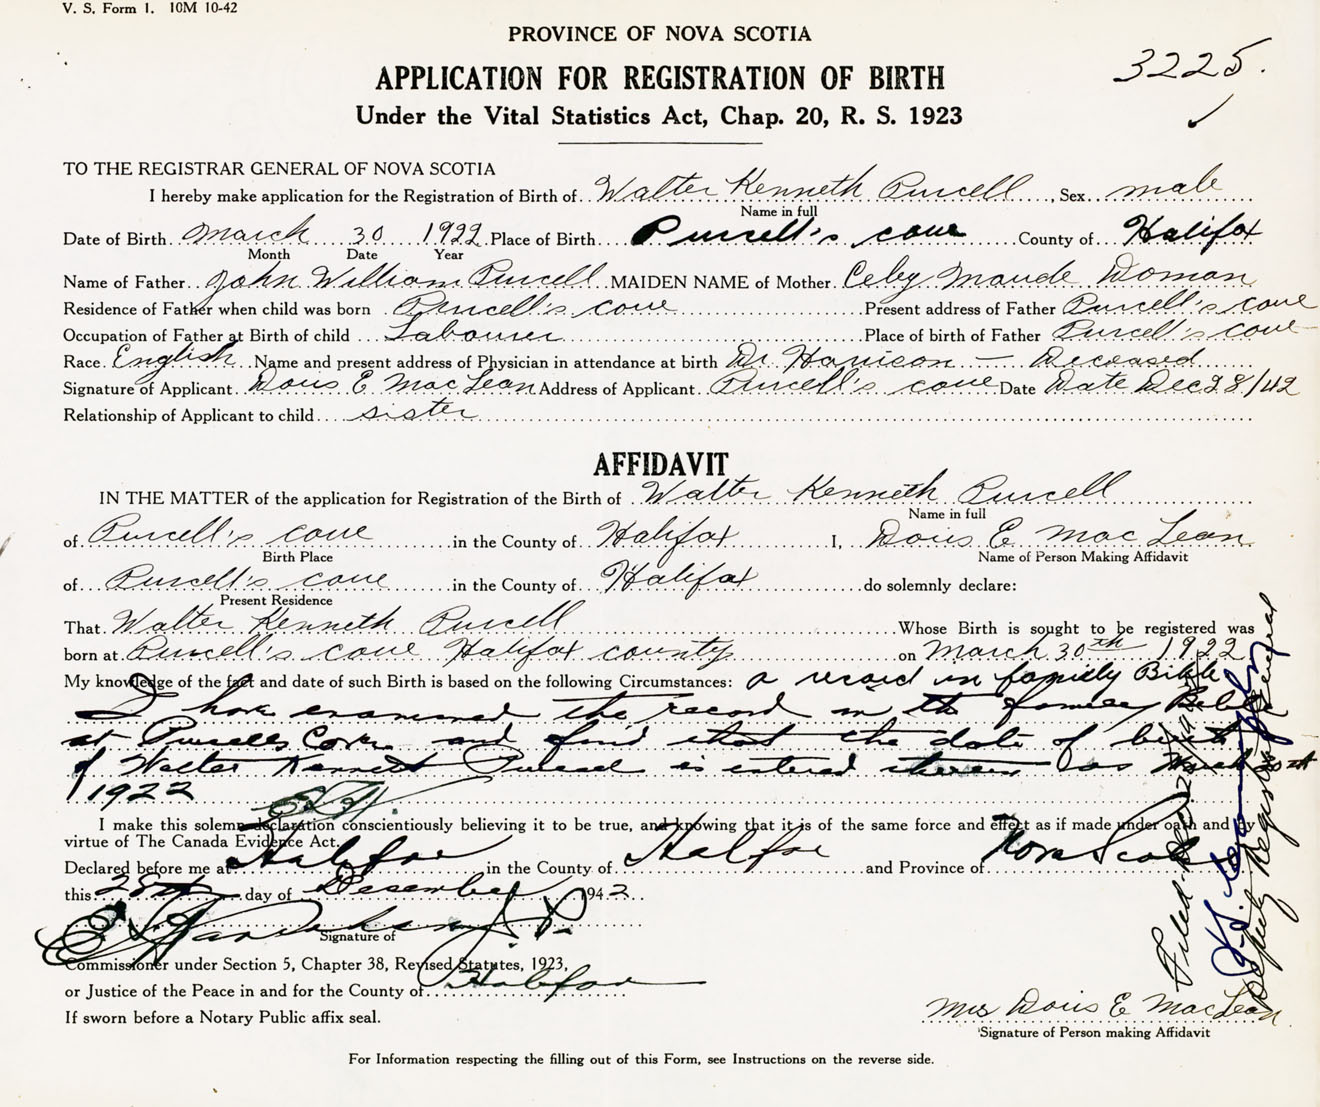 V. S. Form 1. 10M 10-42
PROVINCE OF NOVA SCOTIA
3225.
APPLICATION FOR REGISTRATION OF BIRTH
Under the Vital Statistics Act, Chap. 20, R. S. 1923
TO THE REGISTRAR GENERAL OF NOVA SCOTIA
I hereby make application for the Registration of Birth of Walter Kenneth Purcell, Sex male
Name in full
Date of Birth March 30 1922 Place of Birth Purcell's cove County of Halifax
Month Date Year
Name of Father John William Purcell MAIDEN NAME of Mother Ceby Maude Doman
Residence of Father when child was born Purcell's cove Present address of Father Purcell's cove
Occupation of Father at Birth of child Labourer Place of birth of Father Purcell's cove
Race English Name and present address of Physician in attendance at birth Dr. Harrison — Deceased
Signature of Applicant Doris E MacLean Address of Applicant Purcell's cove Date Date Dec 28/42
Relationship of Applicant to child sister
AFFIDAVIT
IN THE MATTER of the application for Registration of the Birth of Walter Kenneth Purcell
Name in full
of Purcell's cove in the County of Halifax I, Doris E MacLean
Birth Place Name of Person Making Affidavit
of Purcell's cove in the County of Halifax do solemnly declare:
Present Residence
That Walter Kenneth Purcell Whose Birth is sought to be registered was
born at Purcell's cove Halifax county on March 30th 1922
My knowledge of the fact and date of such Birth is based on the following Circumstances: a record in family Bible
I have examined the record in the family Bible
at Purcells Cove and find that the date of birth
of Walter Kenneth Purcell is entered therein as March 30th
1922
I make this solemn declaration conscientiously believing it to be true, and knowing that it is of the same force and effect as if made under oath and by
virtue of The Canada Evidence Act.
Declared before me at Halifax in the County of Halifax and Province of Nova Scotia
this 28th day of December 1942
J. P.
Signature of
Commissioner under Section 5, Chapter 38, Revised Statutes, 1923,
or Justice of the Peace in and for the County of Halifax
If sworn before a Notary Public affix seal.
Mrs Doris E MacLean
Signature of Person making Affidavit
For Information respecting the filling out of this Form, see Instructions on the reverse side.
Filed Dec. 28
Deputy Registrar General